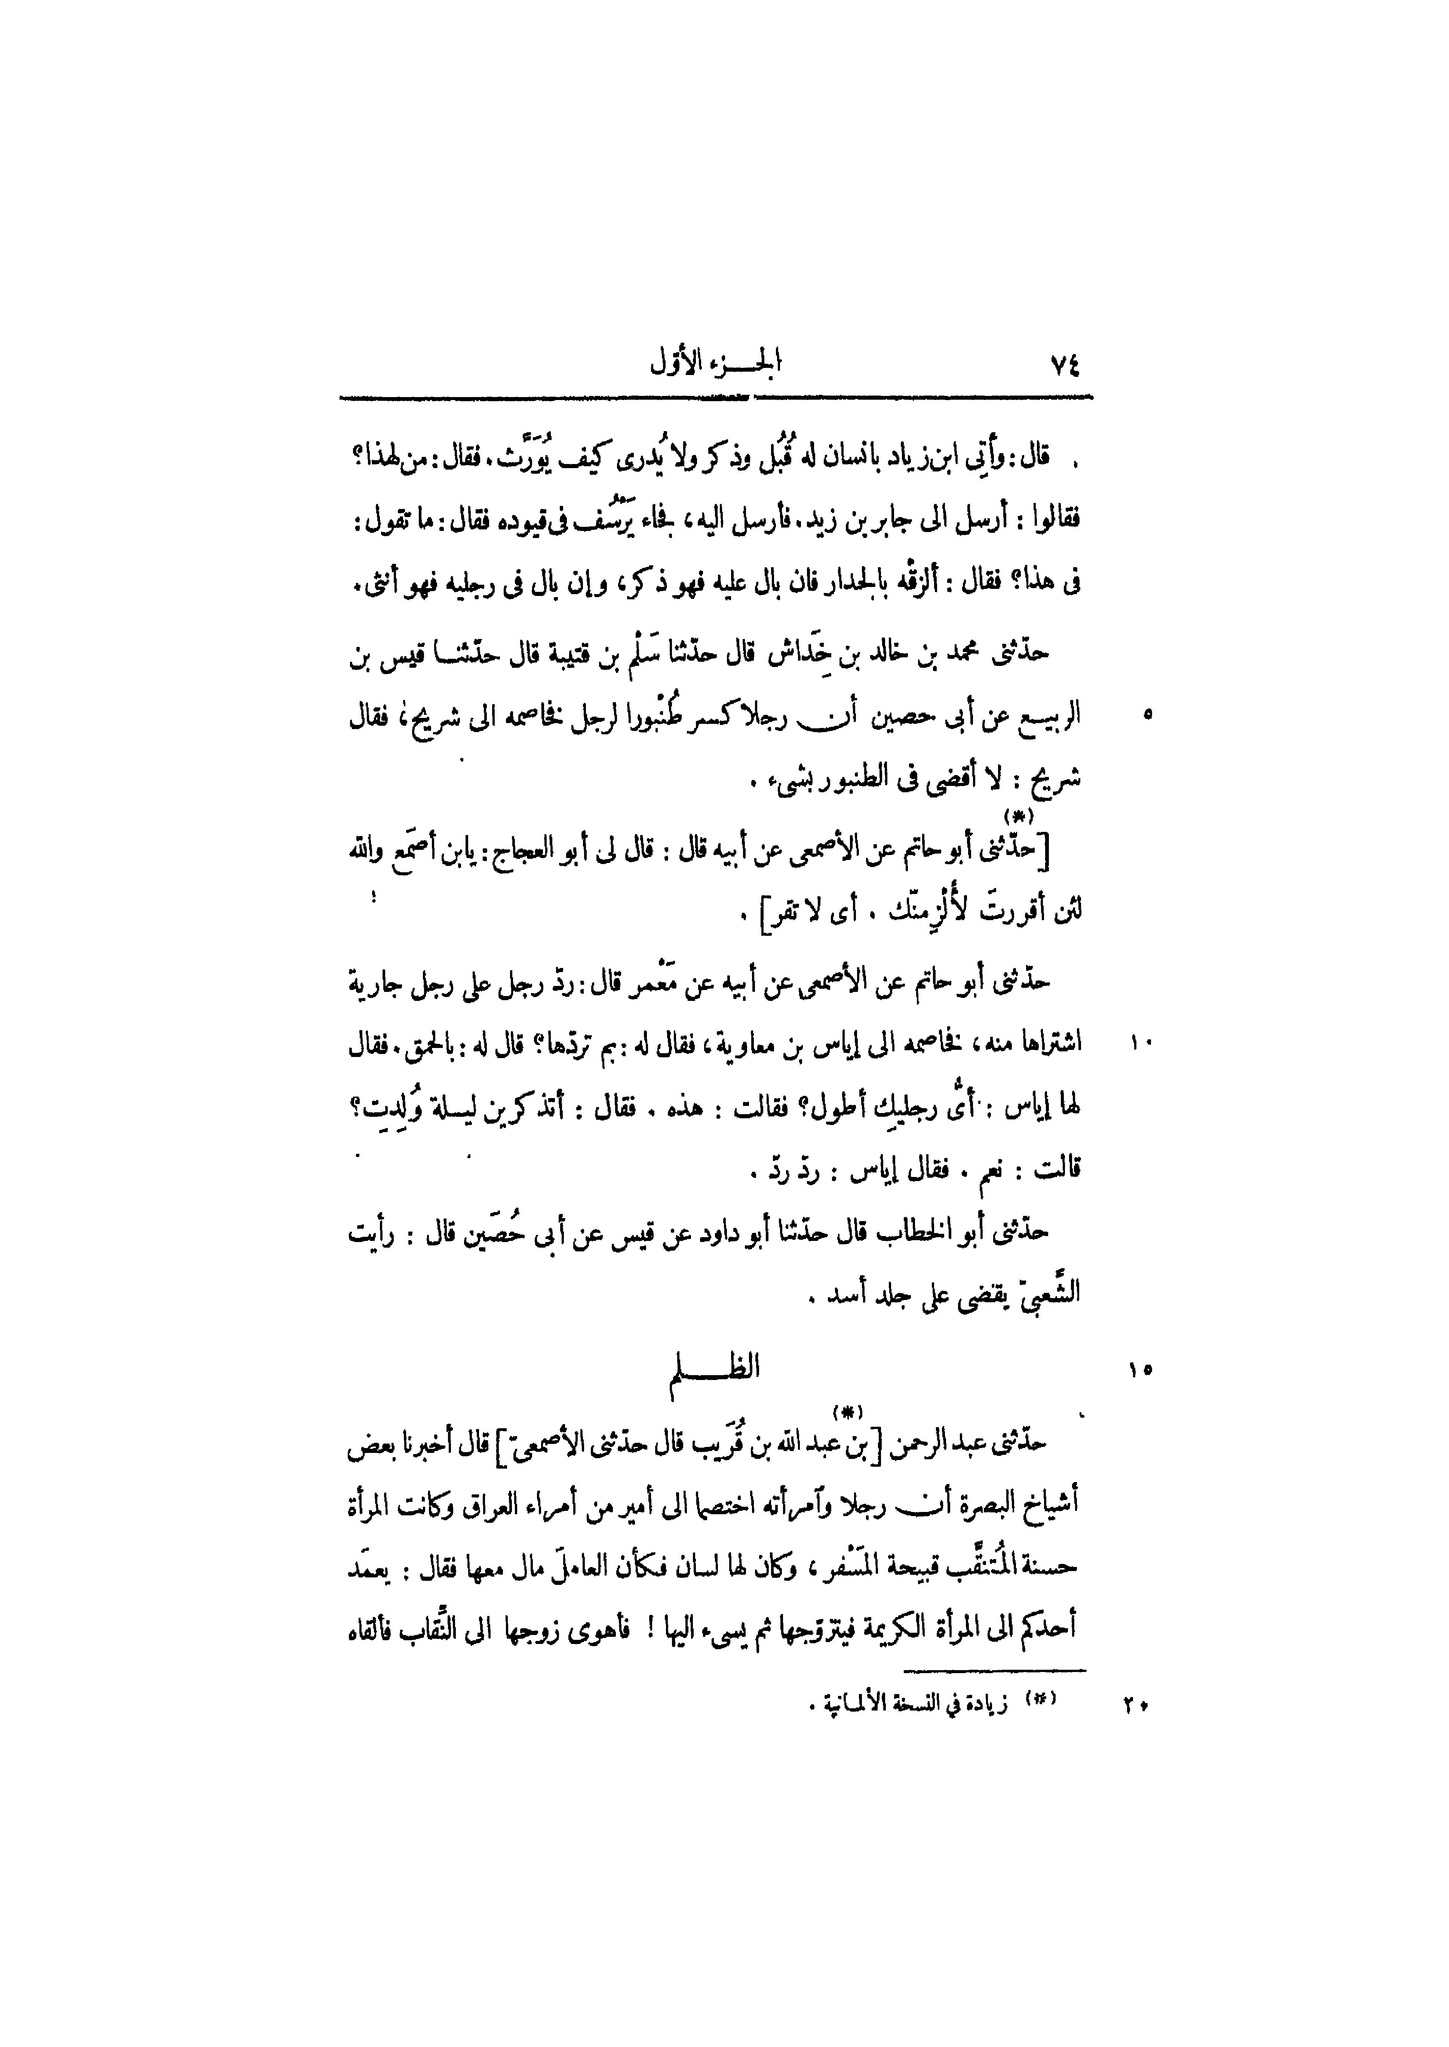 ٧٤ الجزء الأوّل
قال: وأُتِى ابن زياد بانسان له قُبُل وذكر ولا يُدرى كيف يُوَرَّث. فقال: من لهذا؟
فقالوا : أرسل الى جابر بن زيد. فأرسل اليه، فجاء يَرْسُف فى قيوده فقال: ما تقول:
فى هذا؟ فقال : ألزقْه بالجدار فان بال عليه فهو ذكر، وإن بال فى رجليه فهو أنثى.
حدّثنى محمد بن خالد بن خِدَاش قال حدّثنا سَلْم بن قتيبة قال حدّثنا قيس بن
٥ الربيع عن أبى حصين أن رجلا كسر طُنْبورا لرجل فخاصمه الى شريح، فقال
شريح : لا أقضى فى الطنبور بشىء .
(*)
[حدّثنى أبو حاتم عن الأصمعى عن أبيه قال : قال لى أبو العجاج: يابن أصمَع والله
لئن أقررتَ لأُلْزِمنّك . أى لا تقر] .
حدّثنى أبو حاتم عن الأصمعى عن أبيه عن مَعْمر قال: ردّ رجل على رجل جارية
١٠ اشتراها منه، فخاصمه الى إياس بن معاوية، فقال له : بم تردّها؟ قال له : بالحمق. فقال
لها إياس : أىُّ رجليكِ أطول؟ فقالت : هذه . فقال : أتذكرين ليلة وُلِدتِ؟
قالت : نعم . فقال إياس : ردّ ردّ .
حدّثنى أبو الخطاب قال حدّثنا أبو داود عن قيس عن أبى حُصَين قال : رأيت
الشَّعبىّ يقضى على جلد أسد .
١٥ الظلم
(*)
حدّثنى عبد الرحمن [بن عبد الله بن قُرَيب قال حدّثنى الأصمعىّ] قال أخبرنا بعض
أشياخ البصرة أن رجلا وآمرأته اختصما الى أمير من أمراء العراق وكانت المرأة
حسنة المُتنقَّب قبيحة المَسْفر ، وكان لها لسان فكأن العاملَ مال معها فقال : يعمَد
أحدكم الى المرأة الكريمة فيتزوّجها ثم يسىء اليها ! فأهوى زوجها الى النِّقاب فألقاه
٢٠ (*) زيادة فى النسخة الألمانية .